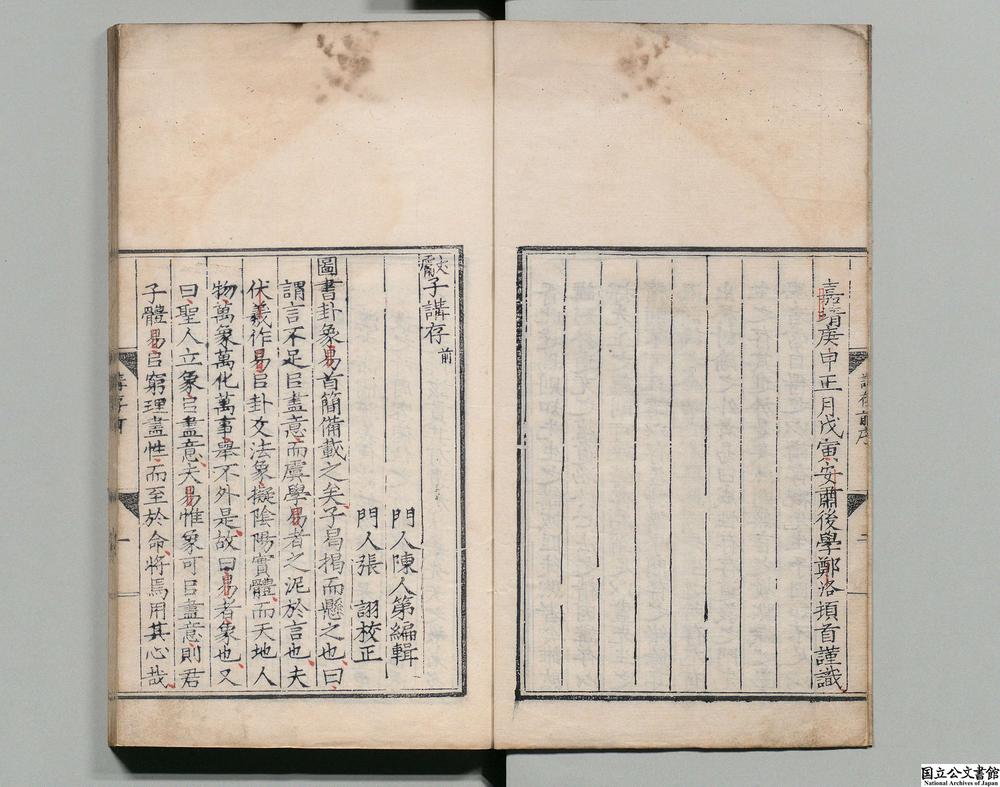 嘉靖庚申正月戊寅安肅後學鄭洛頓首謹識
子講存 前
門人陳人第編輯
門人張 詡校正
圖書卦象易首簡備載之矣子曷揭而懸之也曰
謂言不足㠯盡意而虞學易者之泥於言也夫
伏羲作易㠯卦爻法象擬陰陽實體而天地人
物萬象萬化萬事舉不外是故曰易者象也又
曰聖人立象㠯盡意夫易惟象可㠯盡意則君
子體易㠯窮理盡性而至於命將焉用其心哉
国立公文書館
National Archives of Japan